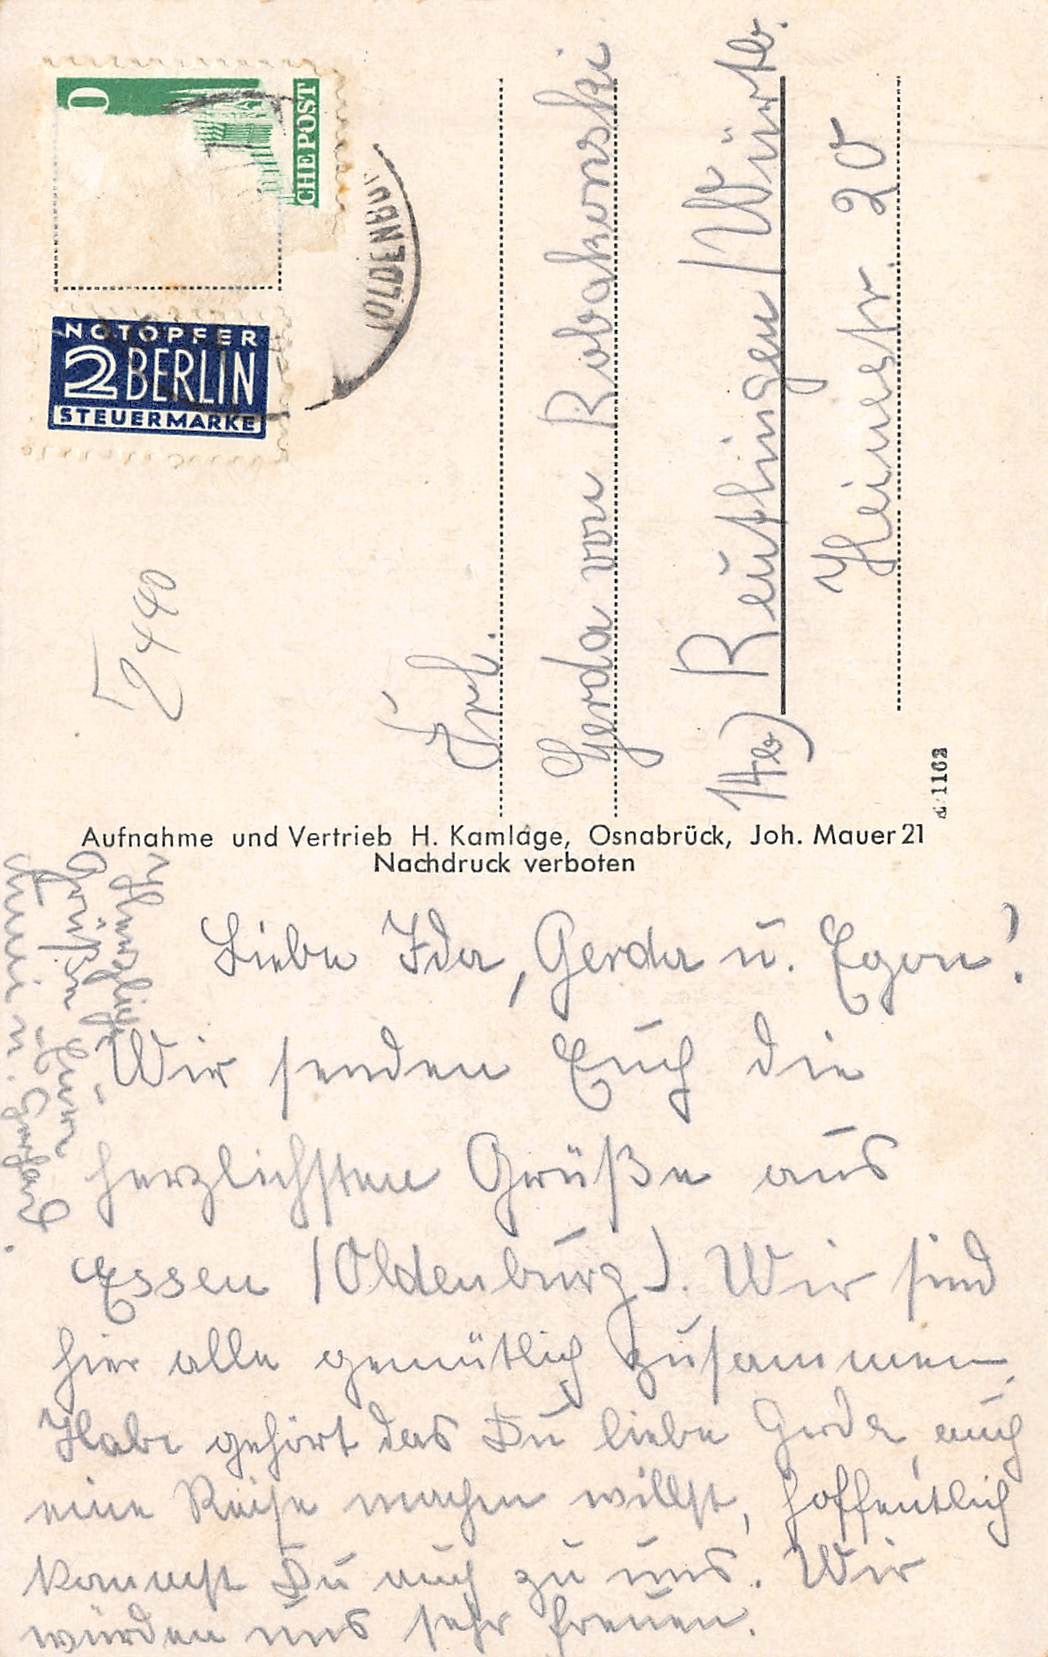 0
CHE POST
(OLDENBU
NOTOPFER
2 BERLIN
STEUERMARKE
2440
Frl.
Gerda von Robakowski
14b) Reutlingen/Württb.
Heinestr. 20
1163
Aufnahme und Vertrieb H. Kamlage, Osnabrück, Joh. Mauer 21
Nachdruck verboten
Liebe Ida, Gerda u. Egon!
Wir senden Euch die
herzlichsten Grüße aus
Essen (Oldenburg). Wir sind
hier alle gemütlich zusammen.
Habe gehört das Du liebe Gerda, auch
eine Reise machen willst, hoffentlich
kommst Du auch zu uns. Wir
würden uns sehr freuen.
Herzliche
Grüße Eure
u. Gerhard.